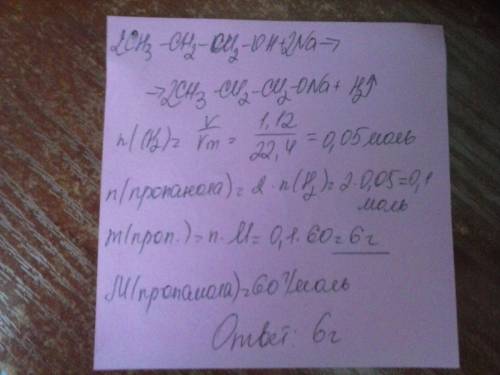 2CH3-CH2-CH2-OH+2Na→
→2CH3-CH2-CH2-ONa+ H2↑
n(H2)= V/Vm = 1,12/22,4 = 0,05 моль
n(пропанола)= 2·n(H2)= 2·0,05=0,1
моль
m(проп.)= n·M= 0,1·60=6г
M(пропанола)=60г/моль
Ответ: 6г